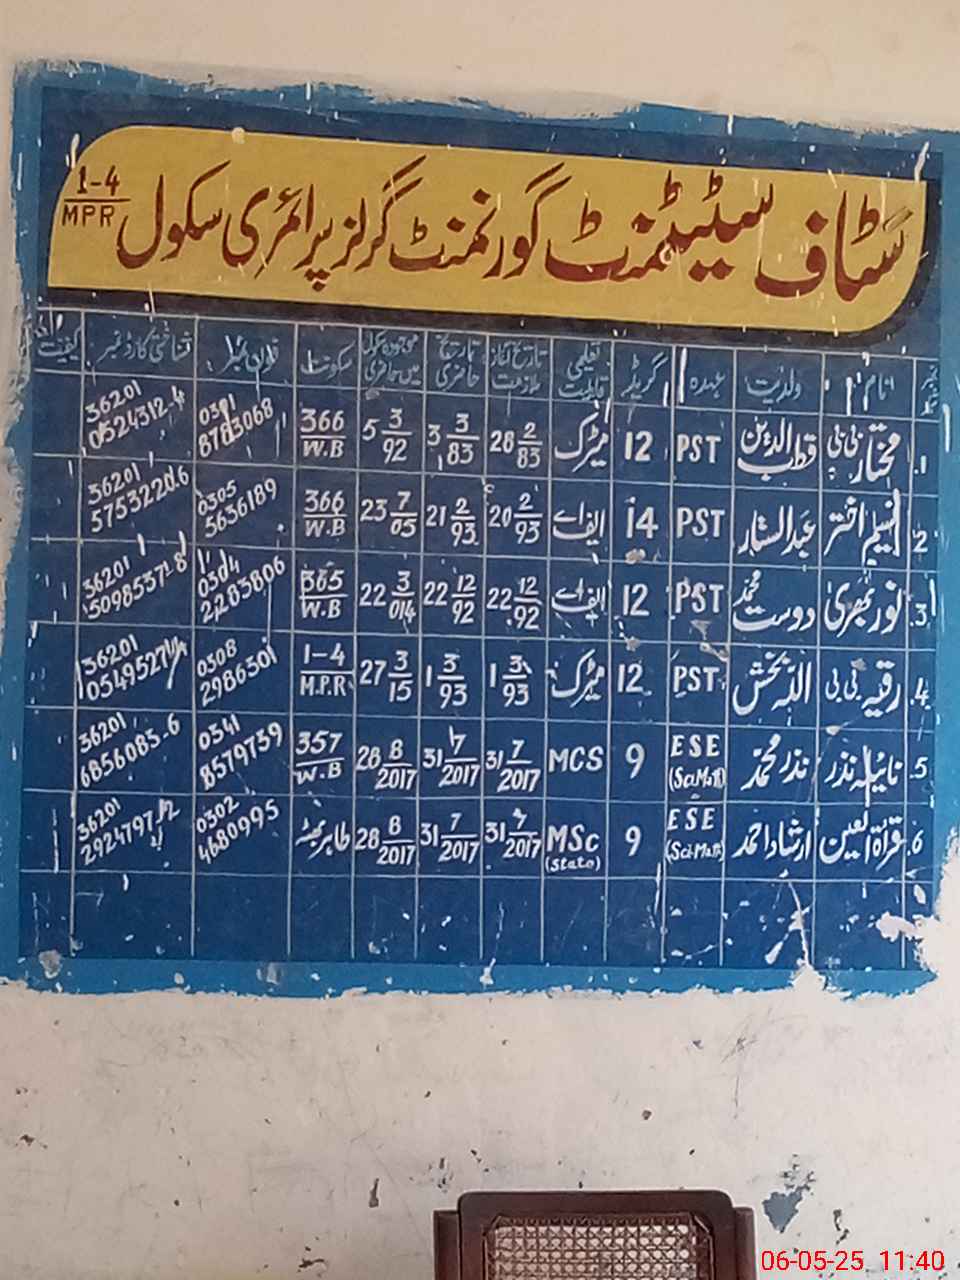 سٹاف سٹیٹمنٹ گورنمنٹ گرلز پرائمری سکول 1-4/MPR
نمبر نام ولدیت عہدہ گریڈ تعلیمی قابلیت تاریخ آغاز ملازمت تاریخ حاضری موجودہ سکول میں حاضری سکونت فون نمبر شناختی کارڈ نمبر کیفیت
1. مختار بی بی قطب الدین PST 12 میٹرک 28 2/83 3 3/83 5 3/92 366/W.B 0301 8783068 36201 0524312-4
2. نسیم اختر عبدالستار PST 14 ایف اے 20 2/93 21 2/93 23 7/05 366/W.B 0305 5636189 36201 5753220-6
3. نور بھری دوست محمد PST 12 ایف اے 22 12/92 22 12/92 22 3/014 365/W.B 0304 2283806 36201 5098537-8
4. رقیہ بی بی اللہ بخش PST 12 میٹرک 1 3/93 1 3/93 27 3/15 1-4/M.P.R 0308 2986301 36201
5. نائیلہ نذر نذر محمد ESE (Sci.Math) 9 MCS 31 7/2017 31 7/2017 28 8/2017 357/W.B 0341 8579739 36201 6856083-6
6. قراۃ العین ارشاد احمد ESE (Sci-Math) 9 MSc (Stato) 31 7/2017 31 7/2017 28 8/2017 طاہر بھٹہ 0302 4680995 36201
06-05-25 11:40